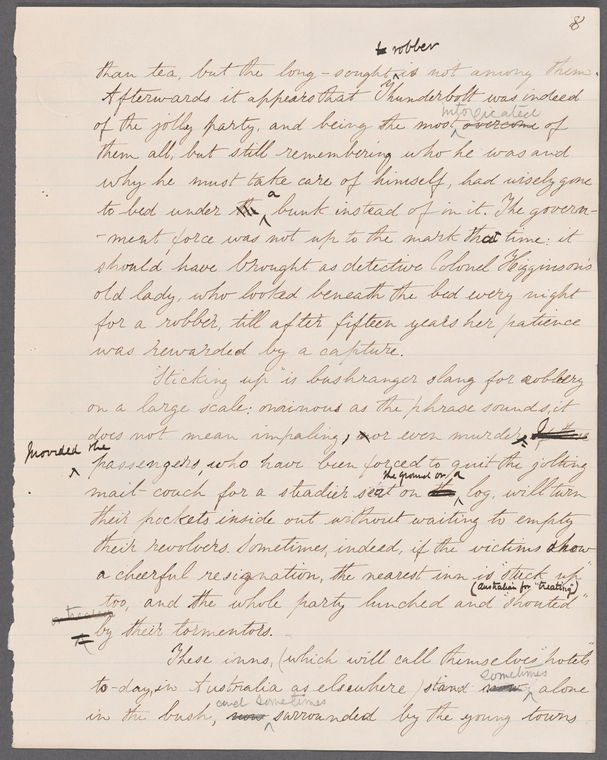 8
robber
than tea, but the long-sought is not among them.
Afterwards it appears that Thunderbolt was indeed
intoxicated
of the jolly party, and being the most overcome of
them all, but still remembering who he was and
why he must take care of himself, had wisely gone
a
to bed under the bunk instead of in it. The govern-
-ment force was not up to the mark that time: it
should have brought as detective Colonel Higginson's
old lady, who looked beneath the bed every night
for a robber, till after fifteen years her patience
was rewarded by a capture.
"Sticking up" is bushranger slang for robbery
on a large scale: ominous as the phrase sounds, it
does not mean impaling, nor even murder; If the
provided the
passengers, who have been forced to quit the jolting
the ground or a
mail-coach for a steadier seat on the log, will turn
their pockets inside out without waiting to empty
their revolvers. Sometimes, indeed, if the victims show
a cheerful resignation, the nearest inn is "stuck up"
(Australian for "treating")
too, and the whole party lunched and "shouted"
by their tormentors.
These inns, (which will call themselves "hotels"
sometimes
to-day, in Australia as elsewhere) stand now alone
and sometimes
in the bush, now surrounded by the young towns